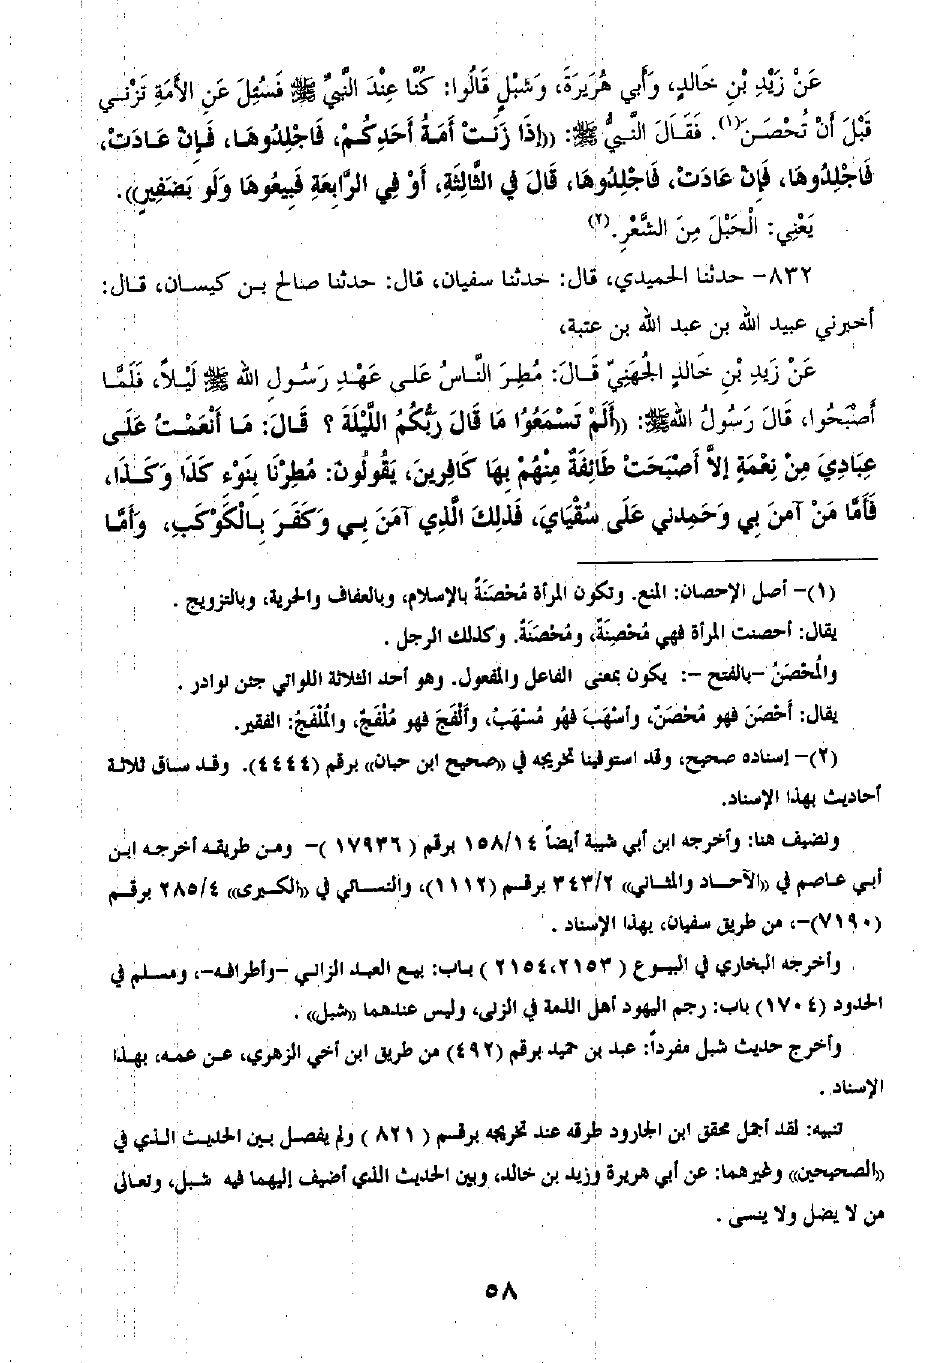 عَنْ زَيْدِ بْنِ خَالِدٍ، وَأَبِي هُرَيْرَةَ، وَشِبْلٍ قَالُوا: كُنَّا عِنْدَ النَّبِيِّ ﷺ فَسُئِلَ عَنِ الأَمَةِ تَزْنِي
قَبْلَ أَنْ تُحْصَنَ(١). فَقَالَ النَّبِيُّ ﷺ: ((إِذَا زَنَتْ أَمَةُ أَحَدِكُمْ، فَاجْلِدُوهَا، فَإِنْ عَادَتْ،
فَاجْلِدُوهَا، فَإِنْ عَادَتْ، فَاجْلِدُوهَا، قَالَ فِي الثَّالِثَةِ، أَوْ فِي الرَّابِعَةِ فَبِيعُوهَا وَلَو بِضَفِيرٍ)).
يَعْنِي: الْحَبْلَ مِنَ الشَّعْرِ.(٢)
٨٣٢- حدثنا الحميدي، قال: حدثنا سفيان، قال: حدثنا صالح بن كيسان، قال:
أخبرني عبيد الله بن عبد الله بن عتبة،
عَنْ زَيْدِ بْنِ خَالِدٍ الجُهَنِيِّ قَالَ: مُطِرَ النَّاسُ عَلى عَهْدِ رَسُولِ الله ﷺ لَيْلاً، فَلَمَّا
أَصْبَحُوا، قَالَ رَسُولُ اللهﷺ: ((أَلَمْ تَسْمَعُوْا مَا قَالَ رَبُّكُمُ اللَّيْلَةَ ؟ قَالَ: مَا أَنْعَمْتُ عَلَى
عِبَادِيَ مِنْ نِعْمَةٍ إلاَّ أَصْبَحَتْ طَائِفَةٌ مِنْهُمْ بِهَا كَافِرِينَ، يَقُولُونَ: مُطِرْنَا بِنَوْءِ كَذَا وَكَذَا،
فَأَمَّا مَنْ آمَنَ بِي وَحَمِدَنِي عَلَى سُقْيَايَ، فَذلِكَ الَّذِي آمَنَ بِي وَكَفَرَ بِالْكَوْكَبِ، وَأَمَّا
(١)- أصل الإحصان: المنع. وتكون المرأة مُحْصَنَةً بالإسلام، وبالعفاف والحرية، وبالتزويج .
يقال: أحصنت المرأة فهي مُحْصِنَةٌ، ومُحْصَنَةٌ. وكذلك الرجل .
والمُحْصَنُ -بالفتح -: يكون بمعنى الفاعل والمفعول. وهو أحد الثلاثة اللواتي جئن نوادر .
يقال: أَحْصَنَ فهو مُحْصَنٌ، وأَسْهَبَ فَهُو مُسْهَبٌ، وأَلْفَجَ فهو مُلْفَجٌ، والمُلْفَجُ: الفقير.
(٢)- إسناده صحيح، وقد استوفينا تخريجه في ((صحيح ابن حبان)) برقم (٤٤٤٤). وقد ساق ثلاثة
أحاديث بهذا الإسناد.
ونضيف هنا: وأخرجه ابن أبي شيبة أيضاً ١٥٨/١٤ برقم ( ١٧٩٣٦ )- ومن طريقه أخرجه ابن
أبي عاصم في ((الآحاد والمثاني)) ٣٤٣/٢ برقم (١١١٢)، والنسائي في ((الكبرى)) ٢٨٥/٤ برقم
(٧١٩٠)-، من طريق سفيان، بهذا الإسناد .
وأخرجه البخاري في البيوع ( ٢١٥٣،٢١٥٤ ) باب: بيع العبد الزاني -وأطرافه-، ومسلم في
الحدود (١٧٠٤) باب: رجم اليهود أهل الذمة في الزنى، وليس عندهما ((شبل)) .
وأخرج حديث شبل مفرداً: عبد بن حميد برقم (٤٩٢) من طريق ابن أخي الزهري، عن عمه، بهذا
الإسناد .
تنبيه: لقد أجمل محقق ابن الجارود طرقه عند تخريجه برقم ( ٨٢١ ) ولم يفصل بين الحديث الذي في
((الصحيحين)) وغيرهما: عن أبي هريرة وزيد بن خالد، وبين الحديث الذي أضيف إليهما فيه شبل، وتعالى
من لا يضل ولا ينسى .
٥٨